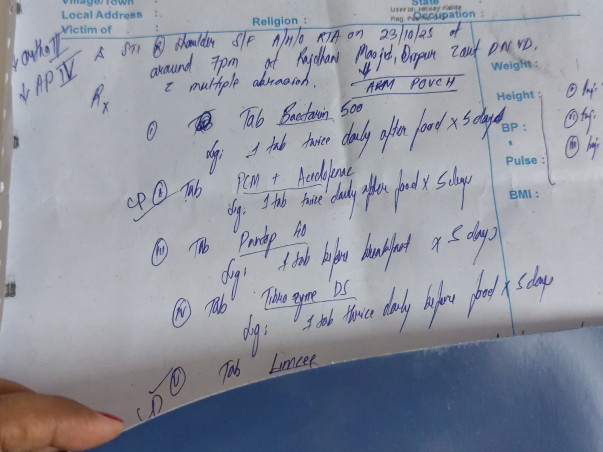 Village/Town
State
Local Address :
Religion :
Occupation :
Victim of
Ortho III
AP IV
& STI (R) shoulder S/F A/H/O RTA on 23/10/25 at
around 7pm at Rajdhani Masjid, DNVD.
multiple abrasion.
ARM POUCH
Weight :
Height :
BP :
Pulse :
BMI :
Rx
(I) Tab 500
Sig: 1 tab twice daily after food x 5 days
(II) Tab PCM + Aceclofenac
Sig: 1 tab twice daily after food x 5 days
(III) Tab Pandap 40
Sig: 1 tab before breakfast x 5 days
(IV) Tab DS
Sig: 1 tab thrice daily before food x 5 days
(V) Tab Limcee